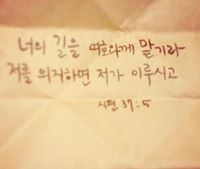 너의 길을 여호와께 맡기라
저를 의지하면 저가 이루시고
시편 37:5